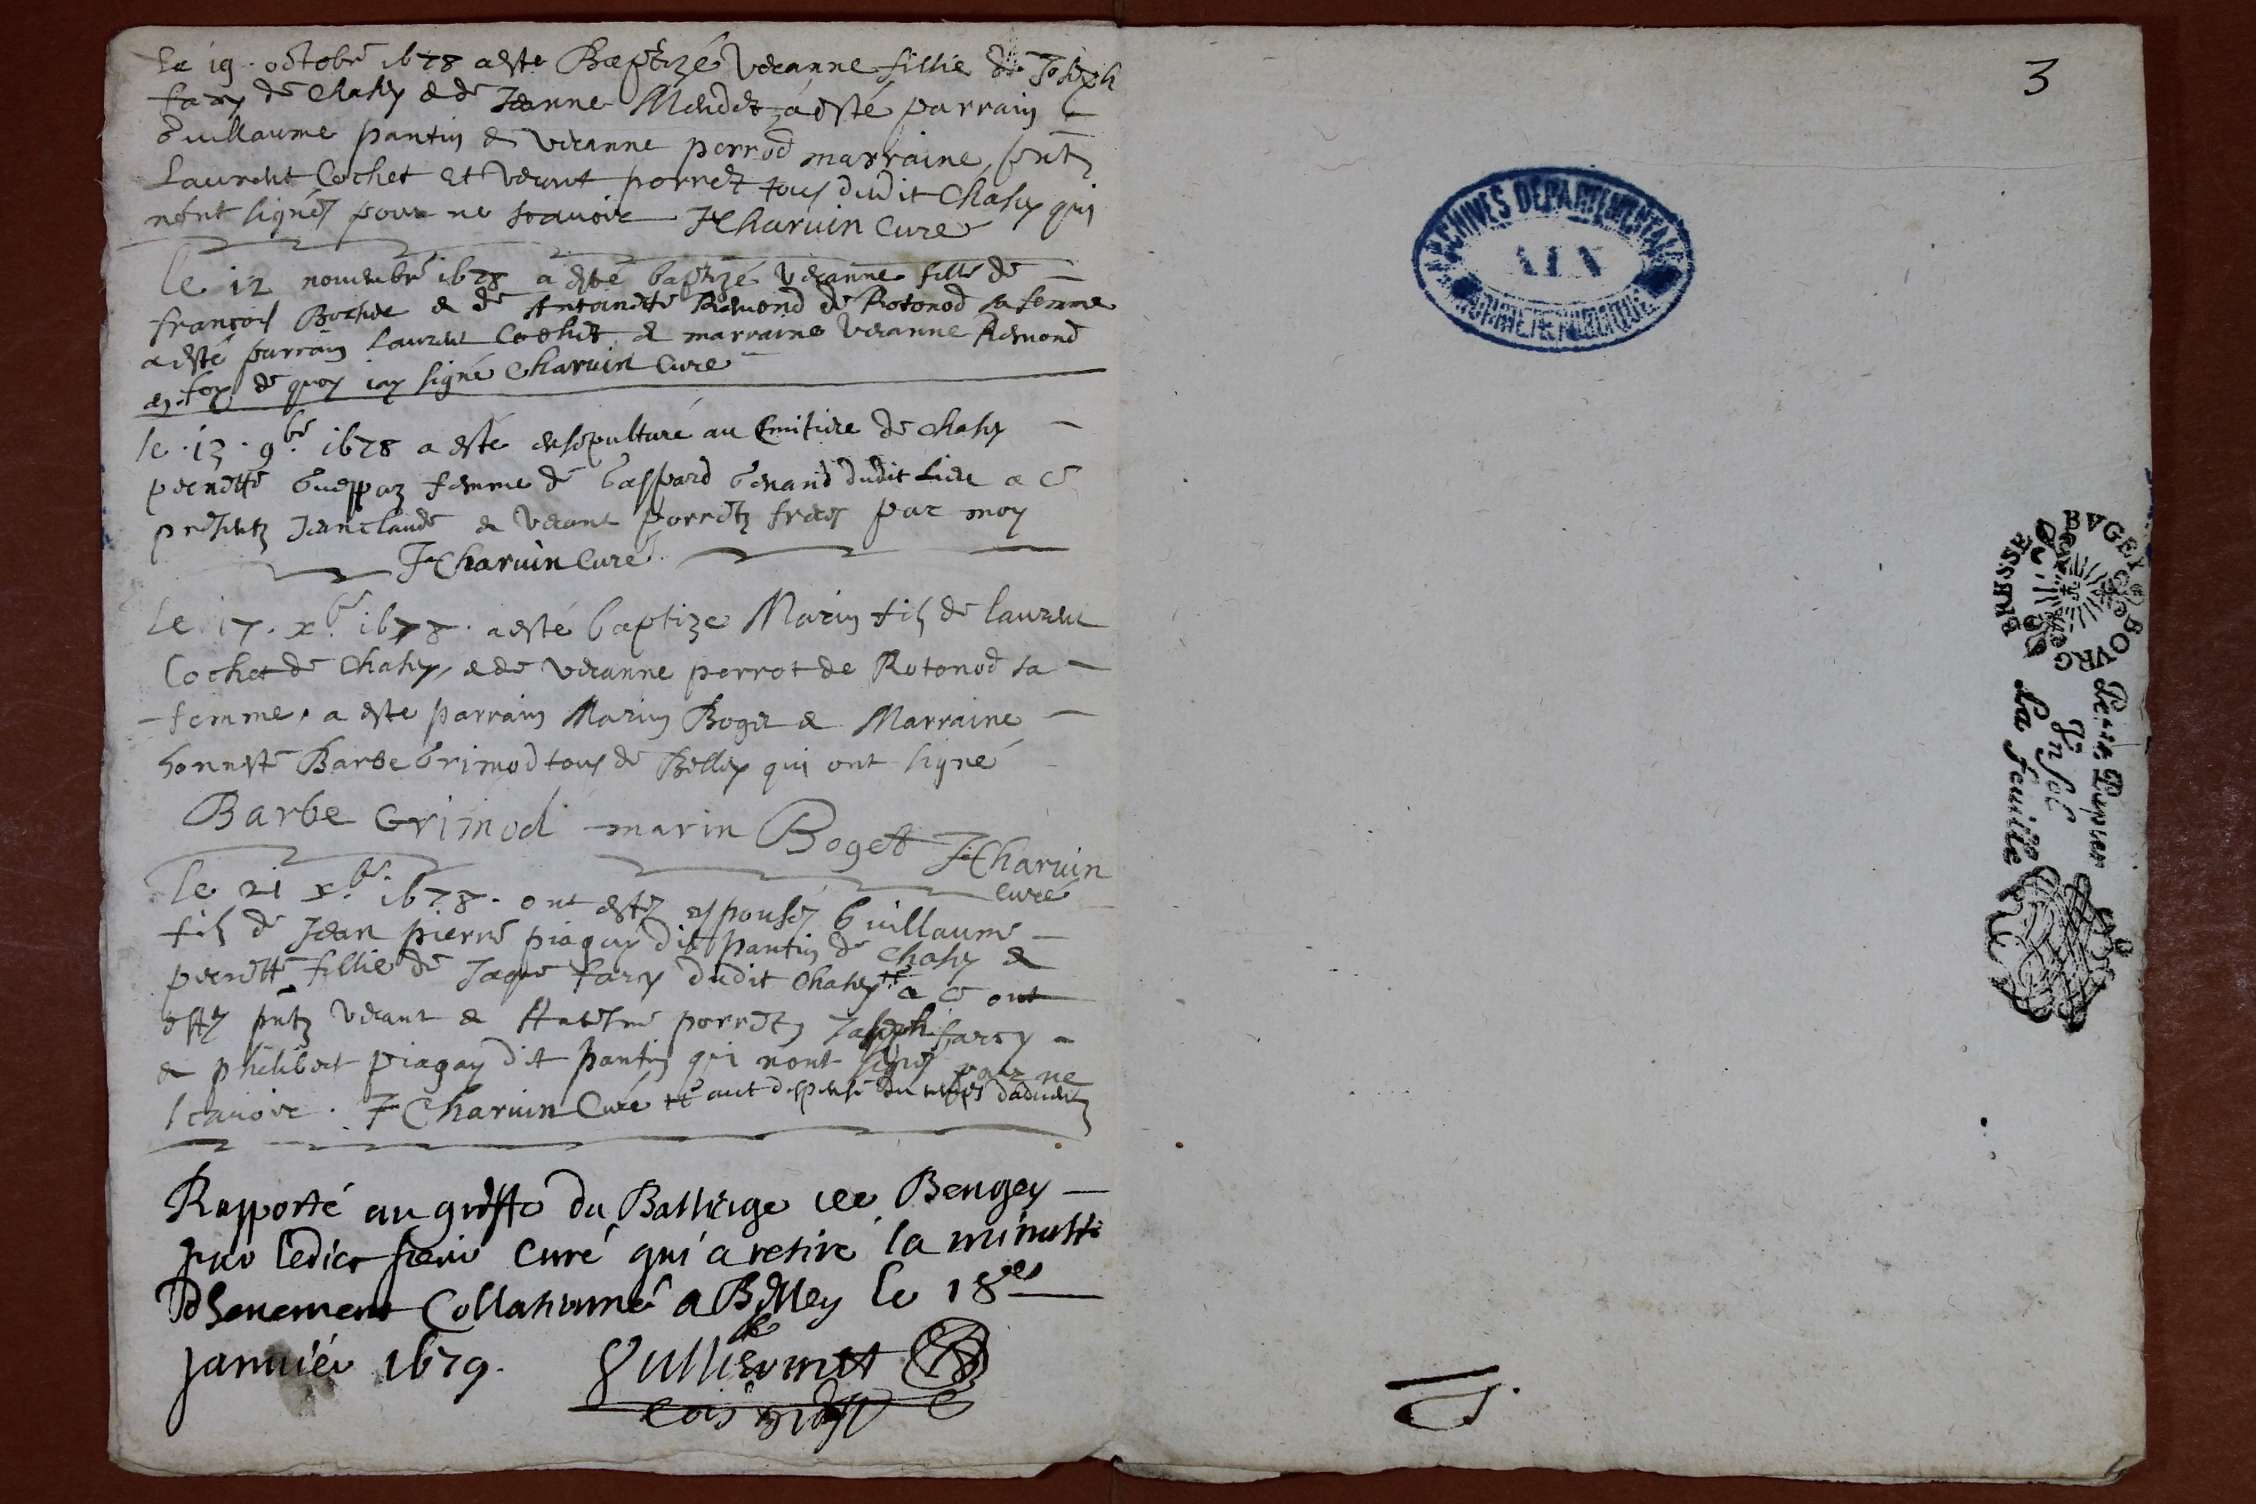 Le 19. octobre 1678 a esté Baptizé Veranne fillie de Joseph
farcy de Chasey & de Jeanne Mendet a esté parrain
Guillaume pantin & Veranne perrod marraine, sont
Laurent Cochet et Verant perretz tous dudit Chasey qui
nont signés pour ne scavoir JCharuin Cure
Le 12 novembre 1678 a esté baptizé Veranne fille de
françois & de Antoinette Remond de Rotonod sa femme
a esté parrain Laurent Cochet & marraine Veranne Remond
en foy de quoy iay signé Charuin Curé
le .13. 9bre 1678 a esté ensepulturé au Cmitiere de Chasey
pernette femme de Gaspard Genand dudit Lieu a ce
presentz Jean claude & Verant perretz freres par moy
JCharuin Curé
Le 17. xbre 1678. a esté baptize Marin filz de laurent
Cochet de Chasey, & de Veranne perrot de Rotonod sa
femme, a este parrain Marin Boget & Marraine
honneste Barbe Grimod tous de Belley qui ont signé
Barbe Grimod marin Boget JCharuin
curé
le 21 xbre 1678. ont estez espousez Guillaume
filz de Jean pierre piagay dit pantin de Chasey &
pernette fillie de Jaque farcy dudit Chasey # a ce ont
estez pntz Verant & Antelme perretz Joseph farcy
& philibert piagay dit pantin qui nont signés pour ne
scavoir. JCharuin Curé # auec dispense du temps daduent
Rapporté au greffe du Balliage de Beugey
par ledict sieur curé qui a retiré la minutte
Deheuement Collationné a Belley le 18es
januiér 1679.
3
ARCHIVES DEPARTEMENTALES
AIN
BRESSE BVGEY BOVRG
Petit Papier
Vn sol
La feuille